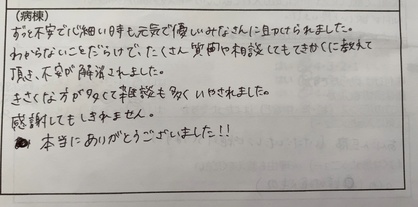 (病棟)
ずっと不安で心細い時も元気で優しいみなさんに助けられました。
わからないことだらけで、たくさん質問や相談してもてきかくに教えて
頂き、不安が解消されました。
きさくな方が多くて雑談も多くいやされました。
感謝してもしきれません。
本当にありがとうございました!!